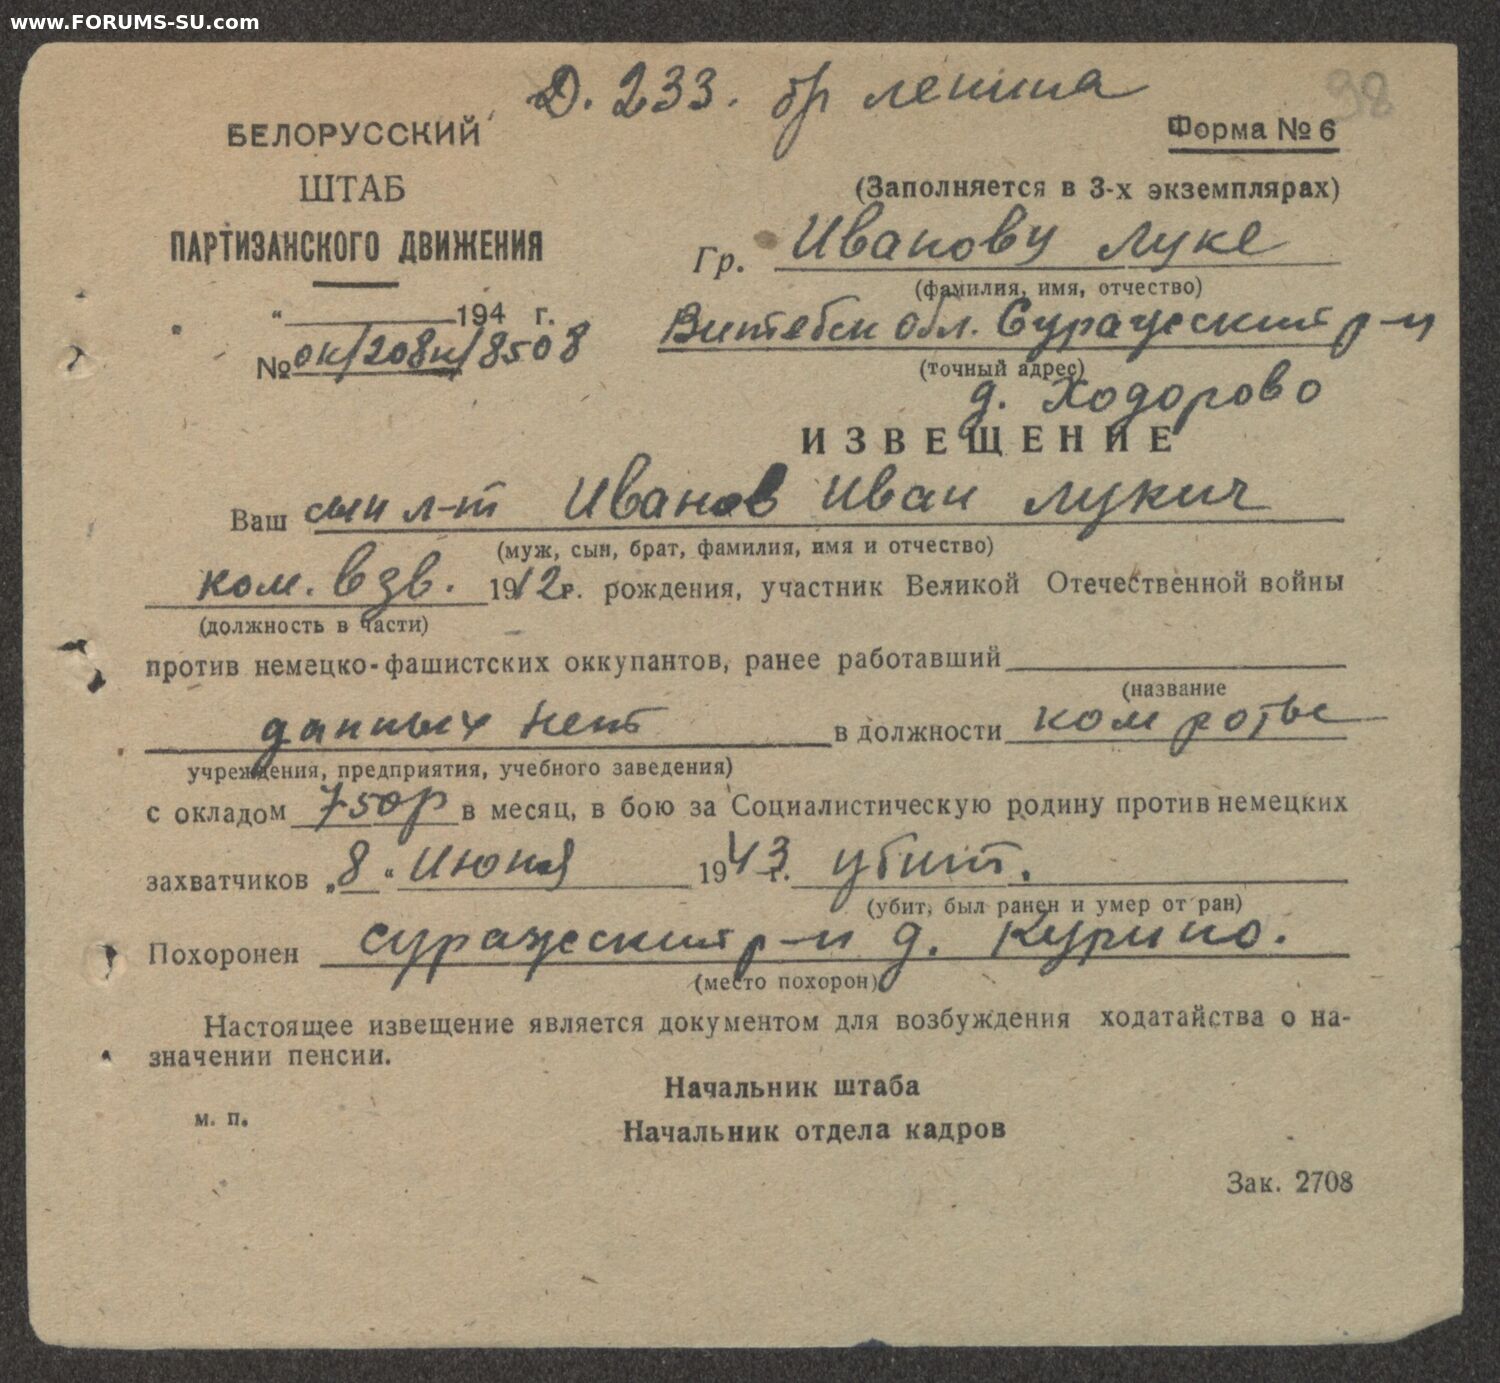 www.FORUMS-SU.com
Д. 233. бр ленина
98
БЕЛОРУССКИЙ
ШТАБ
ПАРТИЗАНСКОГО ДВИЖЕНИЯ
Форма № 6
(Заполняется в 3-х экземплярах)
Гр. Иванову Луке
(фамилия, имя, отчество)
"_____194 г.
Витебск обл. Суражский р-н
№ ок/208н/8508
(точный адрес)
д. Ходорово
ИЗВЕЩЕНИЕ
Ваш сын л-т Иванов Иван Лукич
(муж, сын, брат, фамилия, имя и отчество)
ком. взв. 1912 г. рождения, участник Великой Отечественной войны
(должность в части)
против немецко-фашистских оккупантов, ранее работавший
(название
данных нет в должности ком роты
учреждения, предприятия, учебного заведения)
с окладом 750р в месяц, в бою за Социалистическую родину против немецких
захватчиков „8“ Июня 1943 г. убит.
(убит, был ранен и умер от ран)
Похоронен Суражский р-н д. Курино.
(место похорон)
Настоящее извещение является документом для возбуждения ходатайства о на-
значении пенсии.
Начальник штаба
м. п.
Начальник отдела кадров
Зак. 2708